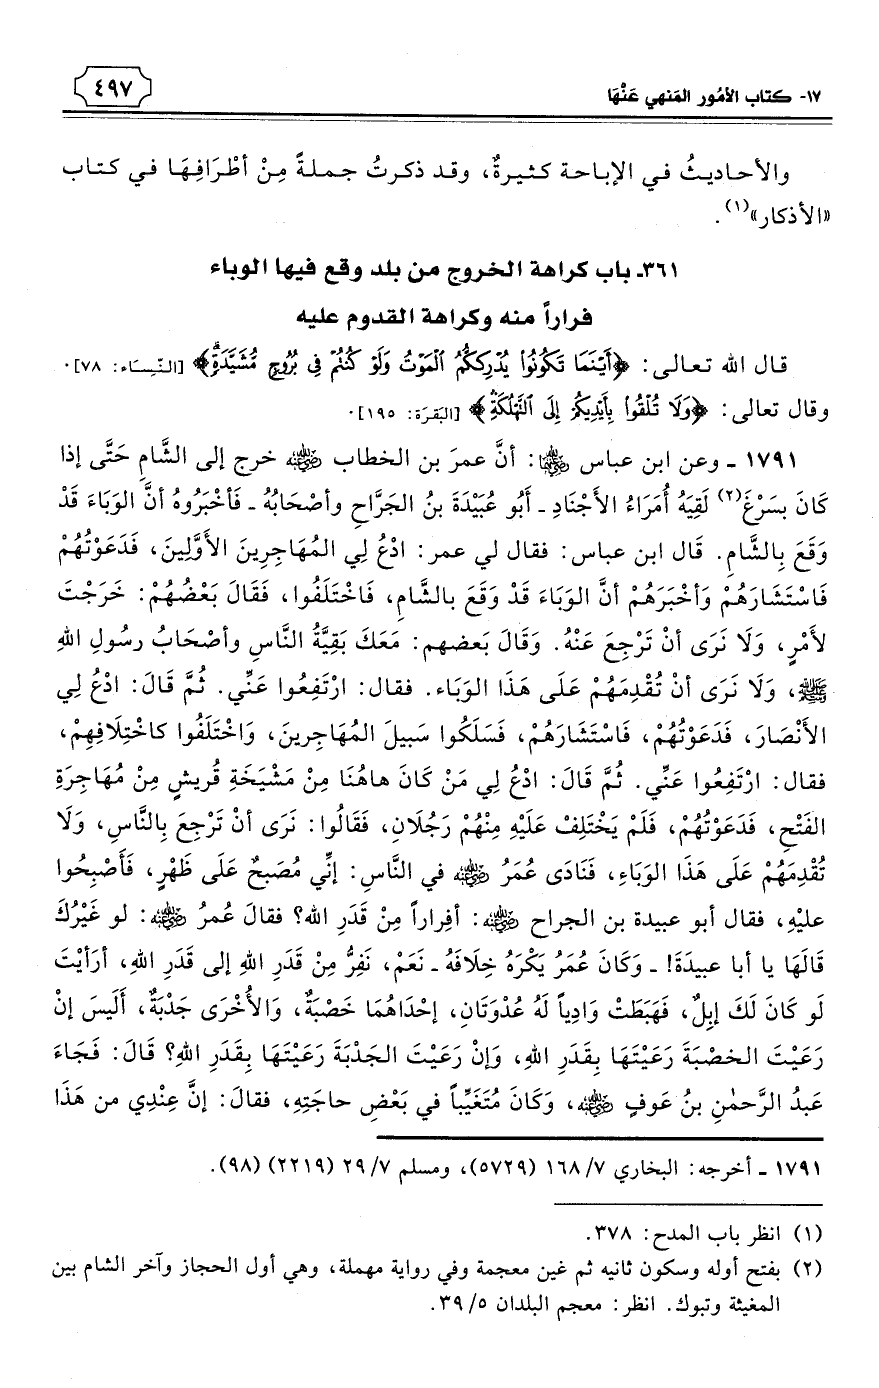 ١٧- كتاب الأمُور المَنهي عَنْهَا
٤٩٧
والأحاديثُ في الإباحة كثيرةٌ، وقد ذكرتُ جملةً مِنْ أطْرَافِهَا في كتاب
«الأذكار»(١).
٣٦١ـ باب كراهة الخروج من بلد وقع فيها الوباء
فراراً منه وكراهة القدوم عليه
قال الله تعالى: ﴿أَيْنَمَا تَكُونُوا۟ يُدْرِككُّمُ ٱلْمَوْتُ وَلَوْ كُنتُمْ فِى بُرُوجٍ مُّشَيَّدَةٍ﴾ [النِّسَاء: ٧٨].
وقال تعالى: ﴿وَلَا تُلْقُوا۟ بِأَيْدِيكُمْ إِلَى ٱلتَّهْلُكَةِ﴾ [البَقَرَة: ١٩٥].
١٧٩١ ـ وعن ابن عباس ﵄: أنَّ عمرَ بن الخطاب ﵁ خرج إلى الشَّامِ حَتَّى إذا
كَانَ بسَرْغَ(٢) لَقِيَهُ أُمَرَاءُ الأَجْنَادِ ـ أَبُو عُبَيْدَةَ بنُ الجَرَّاحِ وأصْحَابُهُ ـ فَأخْبَرُوهُ أنَّ الوَبَاءَ قَدْ
وَقَعَ بِالشَّامِ. قَال ابن عباس: فقال لي عمر: ادْعُ لِي المُهَاجِرِينَ الأَوَّلِينَ، فَدَعَوْتُهُمْ
فَاسْتَشَارَهُمْ وَأخْبَرَهُمْ أنَّ الوَبَاءَ قَدْ وَقَعَ بالشَّامِ، فَاخْتَلَفُوا، فَقَالَ بَعْضُهُمْ: خَرَجْتَ
لأَمْرٍ، وَلَا نَرَى أنْ تَرْجِعَ عَنْهُ. وَقَالَ بَعضهم: مَعَكَ بَقِيَّةُ النَّاسِ وأصْحَابُ رسُولِ اللهِ
ﷺ، وَلَا نَرَى أنْ تُقْدِمَهُمْ عَلَى هَذَا الوَبَاء. فقال: ارْتَفِعُوا عَنِّي. ثُمَّ قَالَ: ادْعُ لِي
الأَنْصَارَ، فَدَعَوْتُهُمْ، فَاسْتَشَارَهُمْ، فَسَلَكُوا سَبيلَ المُهَاجِرينَ، وَاخْتَلَفُوا كاخْتِلَافِهِمْ،
فقال: ارْتَفِعُوا عَنِّي. ثُمَّ قَالَ: ادْعُ لِي مَنْ كَانَ هاهُنَا مِنْ مَشْيَخَةِ قُريشٍ مِنْ مُهَاجِرَةِ
الفَتْحِ، فَدَعَوْتُهُمْ، فَلَمْ يَخْتَلِفْ عَلَيْهِ مِنْهُمْ رَجُلَانِ، فَقَالُوا: نَرَى أنْ تَرْجِعَ بِالنَّاسِ، وَلَا
تُقْدِمَهُمْ عَلَى هَذَا الوَبَاءِ، فَنَادَى عُمَرُ ﵁ في النَّاسِ: إنِّي مُصَبِحٌ عَلَى ظَهْرٍ، فَأَصْبِحُوا
عليْهِ، فقال أبو عبيدة بن الجراح ﵁: أفِراراً مِنْ قَدَرِ الله؟ فقالَ عُمرُ ﵁: لو غَيْرُكَ
قَالَهَا يا أبا عبيدَةَ! ـ وَكَانَ عُمَرُ يَكْرَهُ خِلَافَهُ ـ نَعَمْ، نَفِرُّ مِنْ قَدَرِ اللهِ إلى قَدَرِ اللهِ، أرَأيْتَ
لَو كَانَ لَكَ إبِلٌ، فَهَبَطَتْ وَادِياً لَهُ عُدْوَتَانِ، إحْدَاهُمَا خَصْبَةٌ، وَالأُخْرَى جَدْبَةٌ، أَلَيسَ إنْ
رَعَيْتَ الخصْبَةَ رَعَيْتَهَا بِقَدَرِ اللهِ، وَإنْ رَعَيْتَ الجَدْبَةَ رَعَيْتَهَا بِقَدَرِ اللهِ؟ قَالَ: فَجَاءَ
عَبدُ الرَّحمٰنِ بنُ عَوفٍ ﵁، وَكَانَ مُتَغَيِّباً في بَعْضِ حاجَتِهِ، فقالَ: إنَّ عِنْدِي من هَذَا
١٧٩١ ـ أخرجه: البخاري ٧/ ١٦٨ (٥٧٢٩)، ومسلم ٧/ ٢٩ (٢٢١٩) (٩٨).
(١) انظر باب المدح: ٣٧٨.
(٢) بفتح أوله وسكون ثانيه ثم غين معجمة وفي رواية مهملة، وهي أول الحجاز وآخر الشام بين
المغيثة وتبوك. انظر: معجم البلدان ٥/ ٣٩.